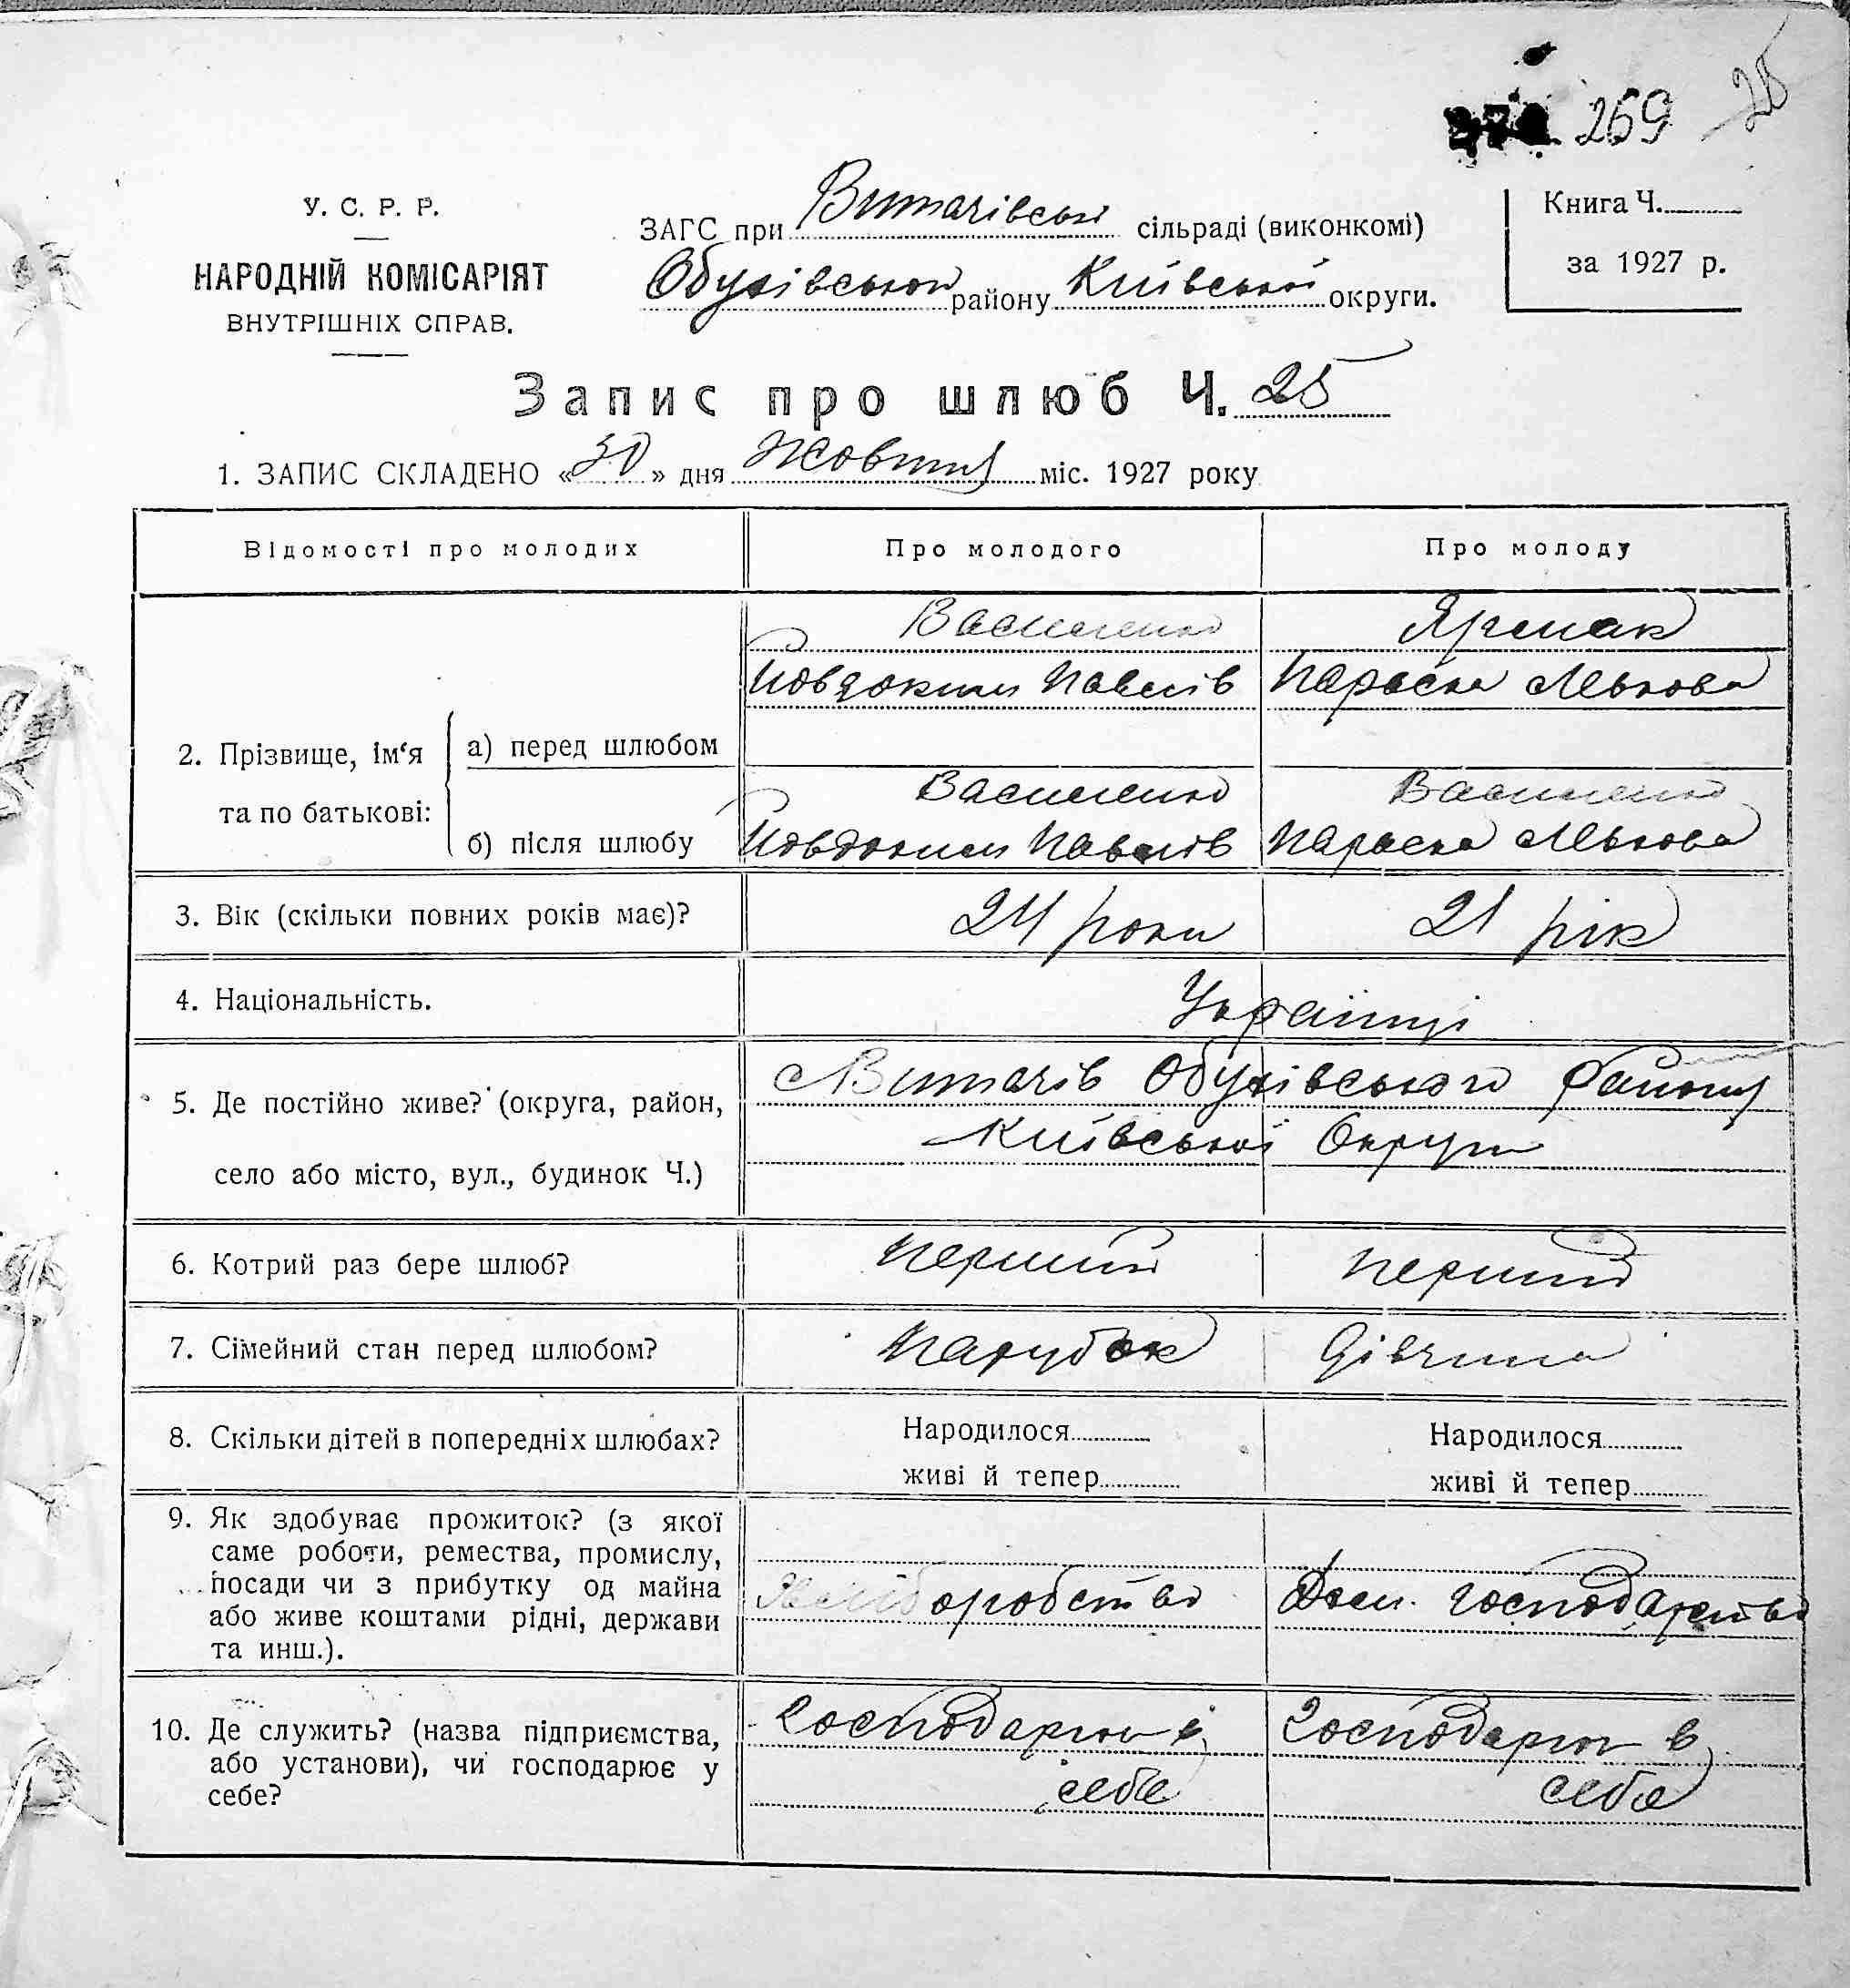 269 25
У. С. Р. Р.
НАРОДНІЙ КОМІСАРІЯТ
ВНУТРІШНІХ СПРАВ.
ЗАГС при Витачівській сільраді (виконкомі)
Обухівського району Київської округи.
Книга Ч.
за 1927 р.
Запис про шлюб Ч. 25
1. ЗАПИС СКЛАДЕНО «30» дня Жовтня міс. 1927 року
Відомості про молодих Про молодого Про молоду
Василенко Ярмак
Йовдоким Павлів Параска Львова
2. Прізвище, ім‘я
та по батькові:
а) перед шлюбом
б) після шлюбу
Василенко Василенко
Йовдоким Павлів Параска Львова
3. Вік (скільки повних років має)? 24 роки 21 рік
4. Національність. Українці
5. Де постійно живе? (округа, район,
село або місто, вул., будинок Ч.)
с Витачів Обухівського району
Київської Округи
6. Котрий раз бере шлюб? Перший Перший
7. Сімейний стан перед шлюбом? Парубок Дівчина
8. Скільки дітей в попередніх шлюбах?
Народилося Народилося
живі й тепер живі й тепер
9. Як здобуває прожиток? (з якої
саме роботи, ремества, промислу,
посади чи з прибутку од майна
або живе коштами рідні, держави
та инш.).
Хліборобство Дом. господарство
10. Де служить? (назва підприємства,
або установи), чи господарює у
себе?
Господарює в Господарює в
себе себе